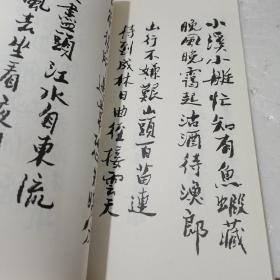 小溪小艇忙知有魚蝦藏
晚風晚靄起沽酒待漁郎
山行不嫌艱山頭百苗連
待到成林日曲徑接雲天
盡頭江水自東流
風去坐看夜